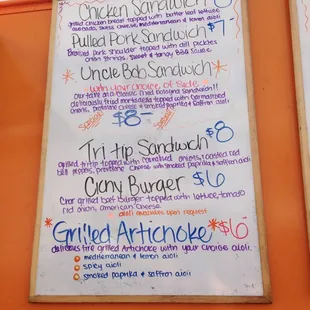 Chicken Sandwich
grilled chicken breast topped with butter leaf lettuce
avocado, swiss cheese, mediterranean & lemon aioli
Pulled Pork Sandwich $7-
Braised pork shoulder topped with dill pickles
onion strings, sweet & tangy BBQ sauce
*Uncle Bob Sandwich*
with your choice of Side
Our take on a classic fried bologna sandwich!!
deliciously fried mortadella topped with caramelized
onions, provolone cheese & smoked paprika & saffron aioli
$8-
Tri tip Sandwich $8
grilled tri tip topped with caramelized onions, roasted red
bell peppers, provolone cheese with smoked paprika & saffron aioli
Burger $6
Char grilled beef burger topped with lettuce, tomato
red onion, american cheese
aioli available upon request
*Grilled Artichoke* $6-
delicious fire grilled Artichoke with your choice aioli.
mediterranean & lemon aioli
spicy aioli
smoked paprika & saffron aioli